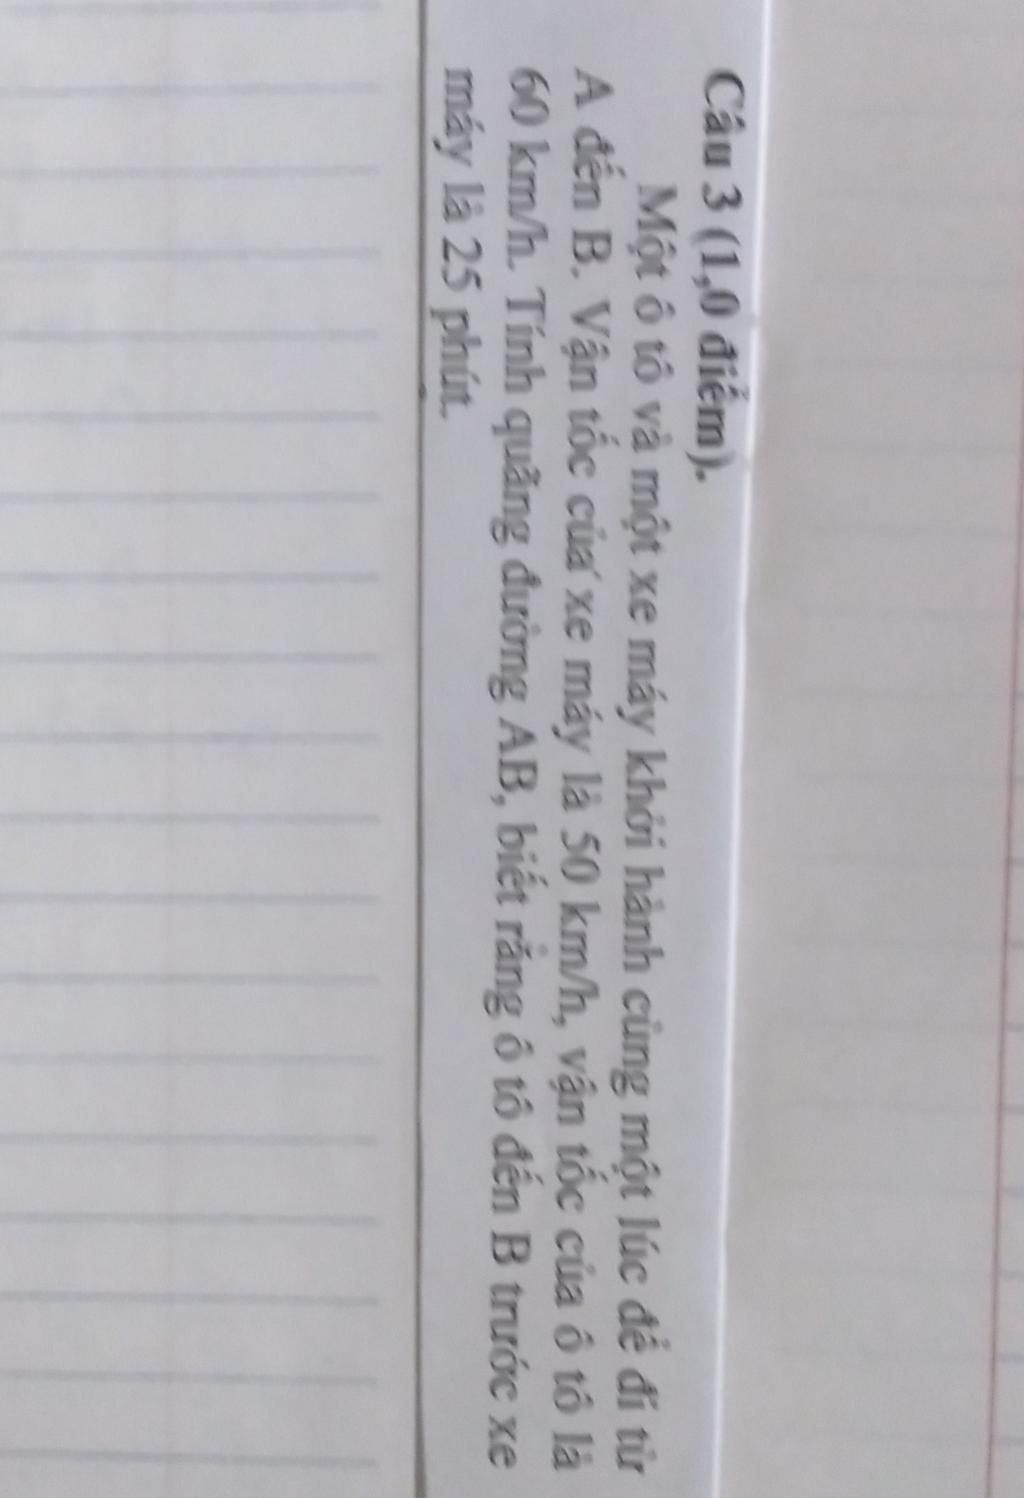 Câu 3 (1,0 điểm).
Một ô tô và một xe máy khởi hành cùng một lúc để đi từ
A đến B. Vận tốc của xe máy là 50 km/h, vận tốc của ô tô là
60 km/h. Tính quãng đường AB, biết rằng ô tô đến B trước xe
máy là 25 phút.